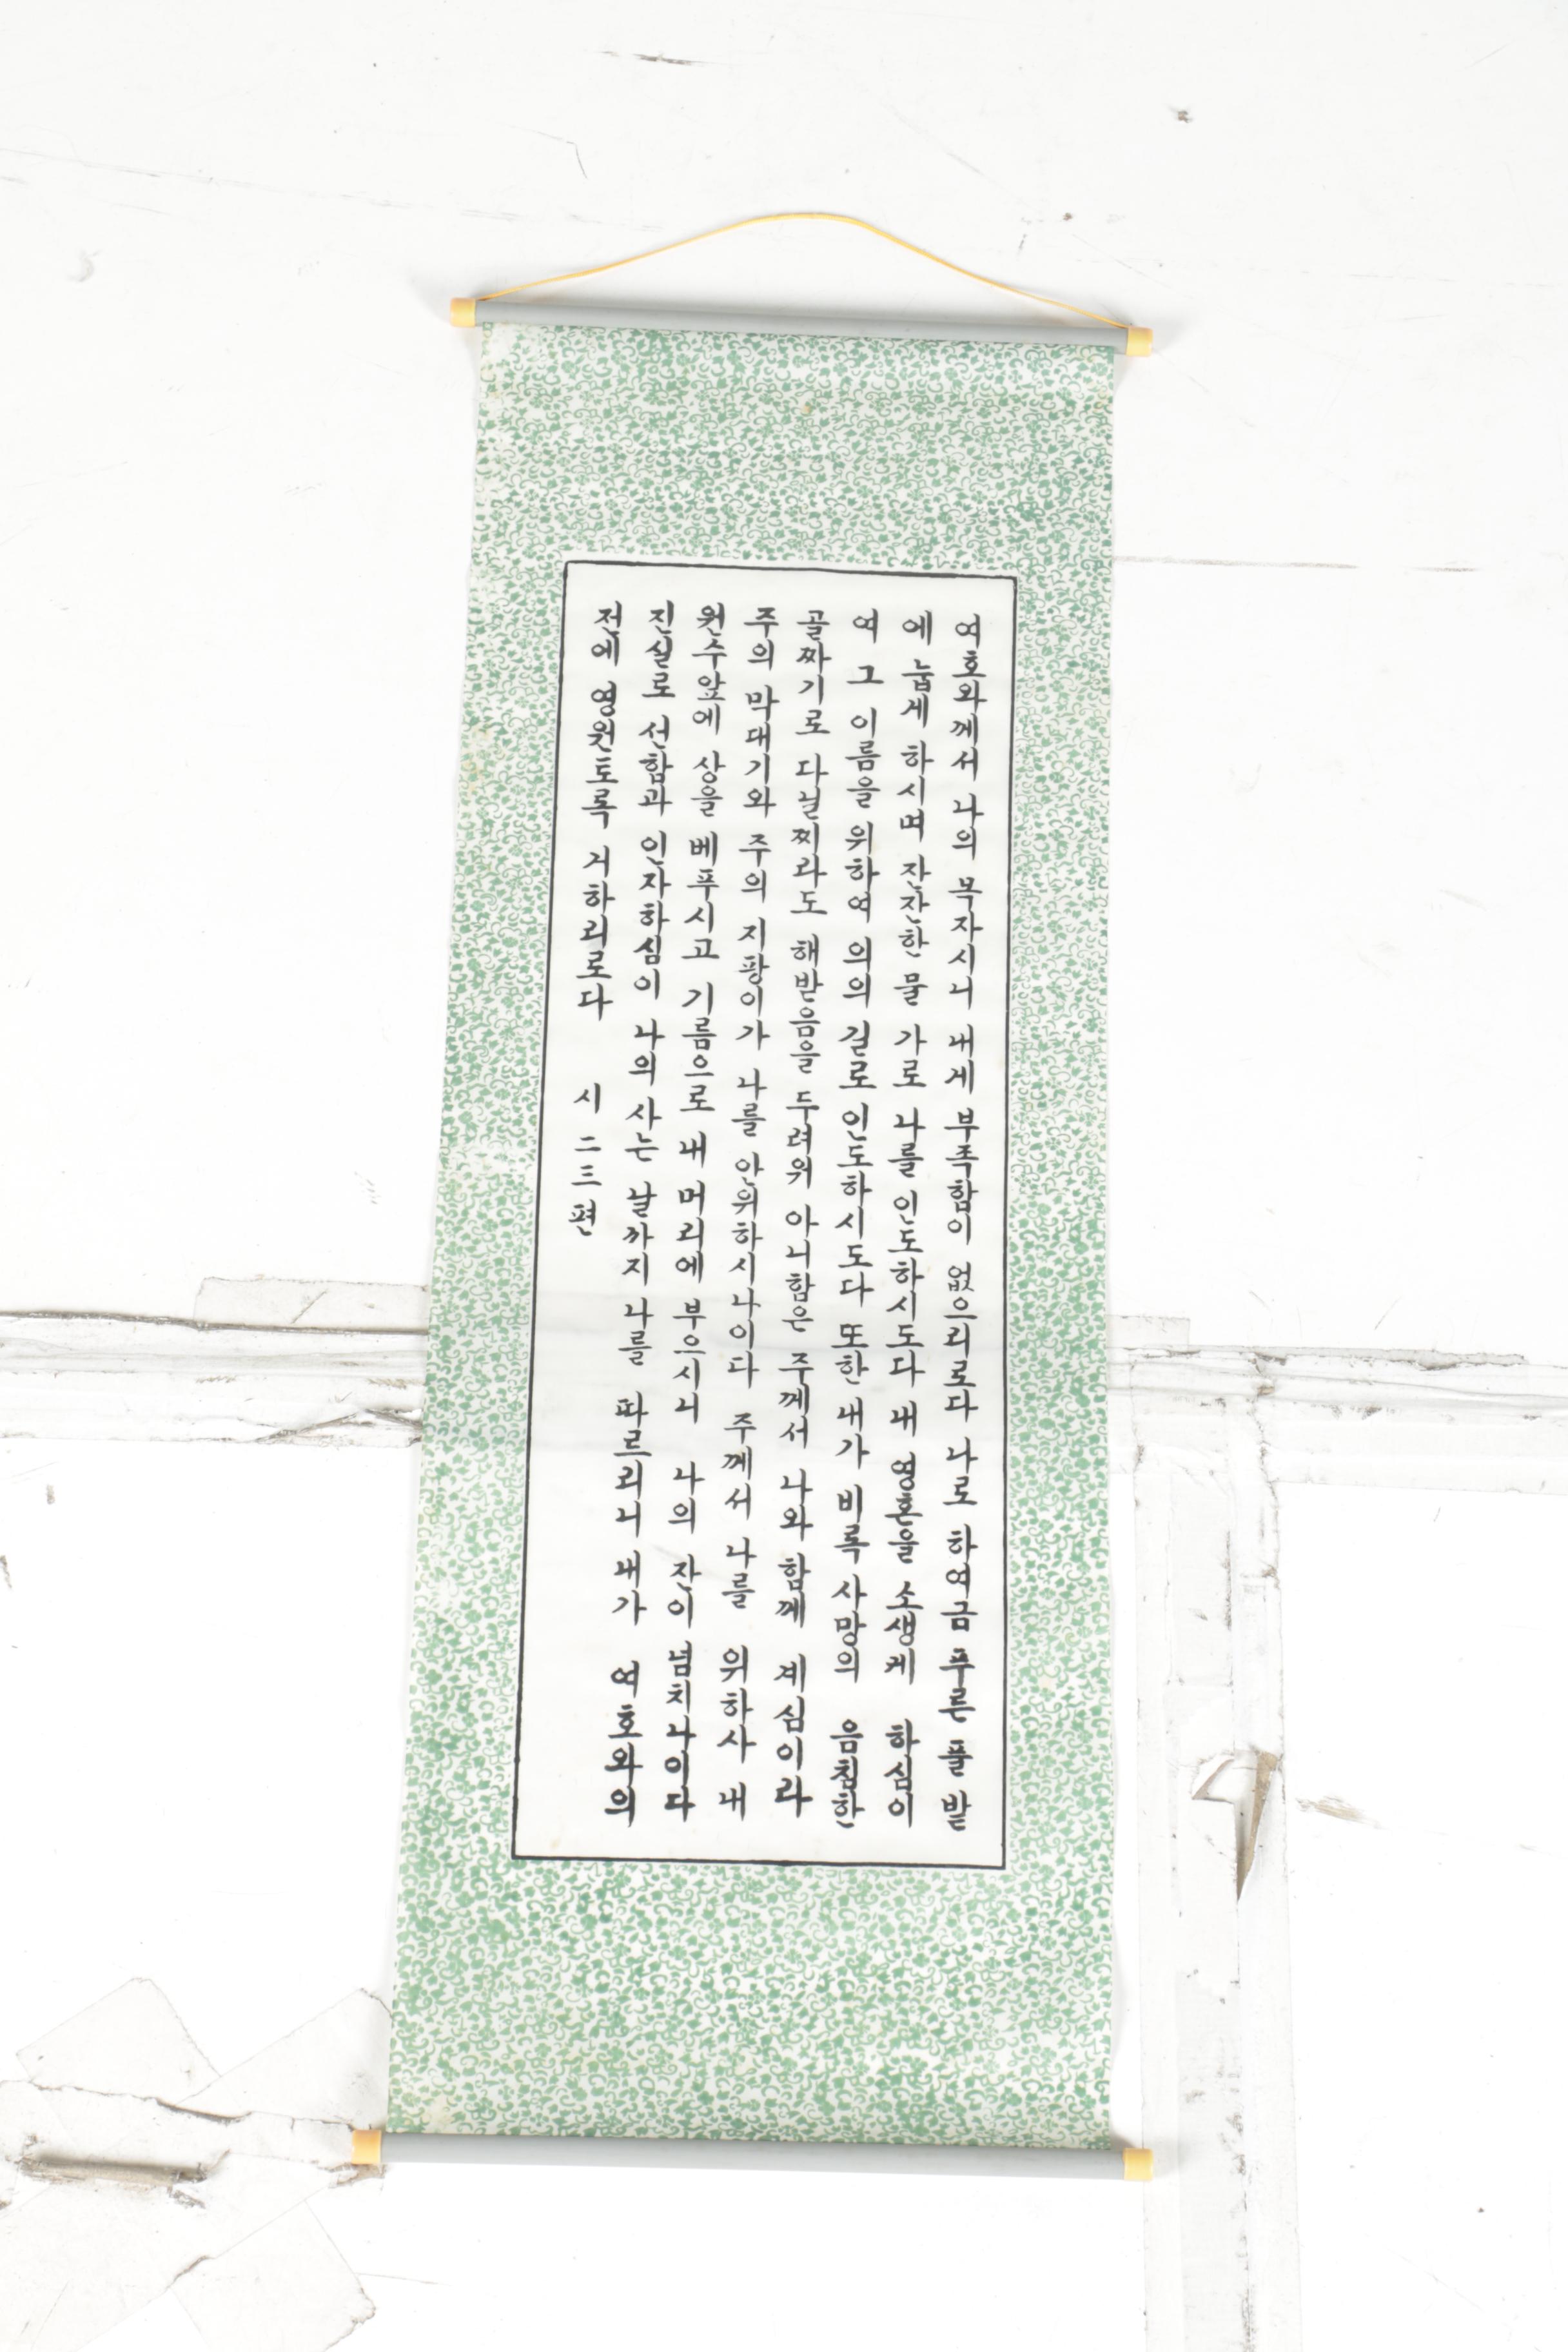 여호와께서 나의 목자시니 내게 부족함이 없으리로다 나로 하여금 푸른 풀 밭
에 눕게 하시며 잔잔한 물 가로 나를 인도하시도다 내 영혼을 소생케 하심이
여 그 이름을 위하여 의의 길로 인도하시도다 또한 내가 비록 사망의 음침한
골짜기로 다닐찌라도 해받음을 두려워 아니함은 주께서 나와 함께 계심이라
주의 막대기와 주의 지팡이가 나를 안위하시나이다 주께서 나를 위하사 내
원수앞에 상을 베푸시고 기름으로 내 머리에 부으시니 나의 잔이 넘치나이다
진실로 선함과 인자하심이 나의 사는 날까지 나를 따르리니 내가 여호와의
전에 영원토록 거하리로다 시 二三편